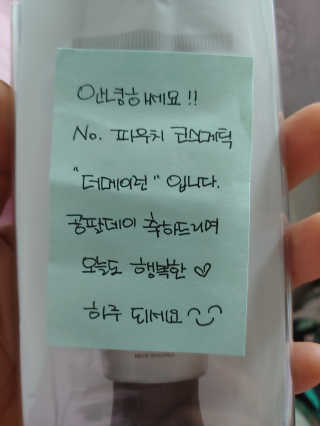 안녕하세요 !!
No. 파우치 코스메틱
"더메이런" 입니다.
공팔데이 축하드리며
오늘도 행복한 ♡
하루 되세요